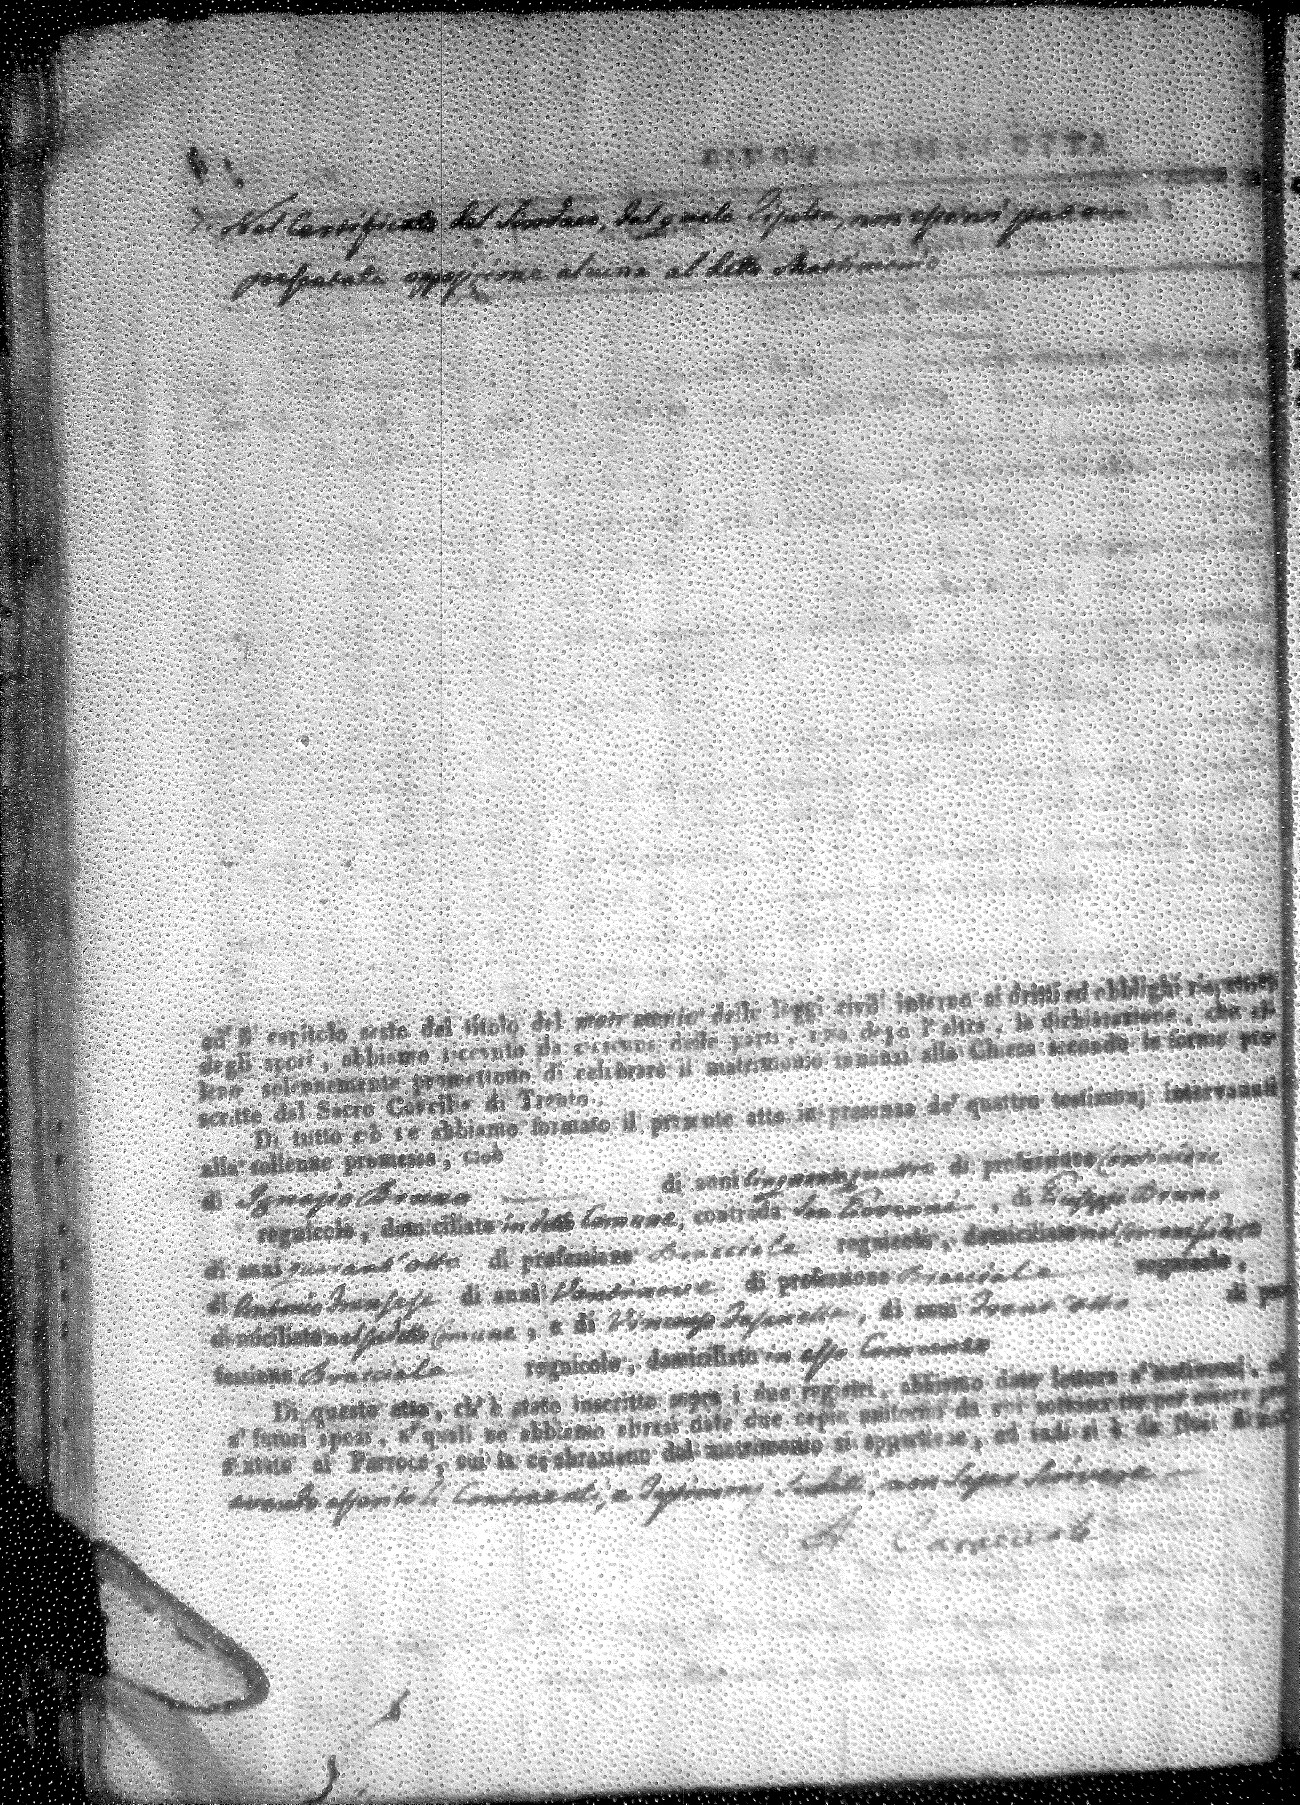 Nel Certificato del Sindaco, dal quale, non essersi
presentata opposizione alcuna al detto Matrimonio
ed il capitolo sesto del titolo del matrimonio delle leggi civili intorno ai dritti ed obblighi rispettivi
degli sposi, abbiamo ricevuto da ciascuna delle parti, una dopo l'altra, la dichiarazione, che el-
leno solennemente promettono di celebrare il matrimonio innanzi alla Chiesa secondo le forme pre-
scritte dal Sacro Concilio di Trento.
Di tutto ciò ne abbiamo formato il presente atto in presenza de' quattro testimonj intervenuti
alla sollenne promessa, cioè
di Ignazio Bruno di anni cinquantaquattro di professione
regnicolo, domiciliato in detto Comune, contrada San Giovanni, di Giuseppe Bruno
di anni quarant'otto di professione Bracciale regnicolo, domiciliato
di Antonio di anni di professione Bracciale regnicolo,
domiciliato nel Comune, e di Vincenzo, di anni Trent'otto di pro-
fessione Bracciale regnicolo, domiciliato in
Di questo atto, ch'è stato inscritto sopra i due registri, abbiamo dato lettura a' testimonj, ed
a' futuri sposi, a' quali ne abbiamo altresì date due copie uniformi da noi sottoscritte per essere pre-
sentate al Parroco, cui la celebrazione del matrimonio si appartiene, ed indi si è da Noi
avendo asserito i Contraenti, e Testimonj non saper scrivere